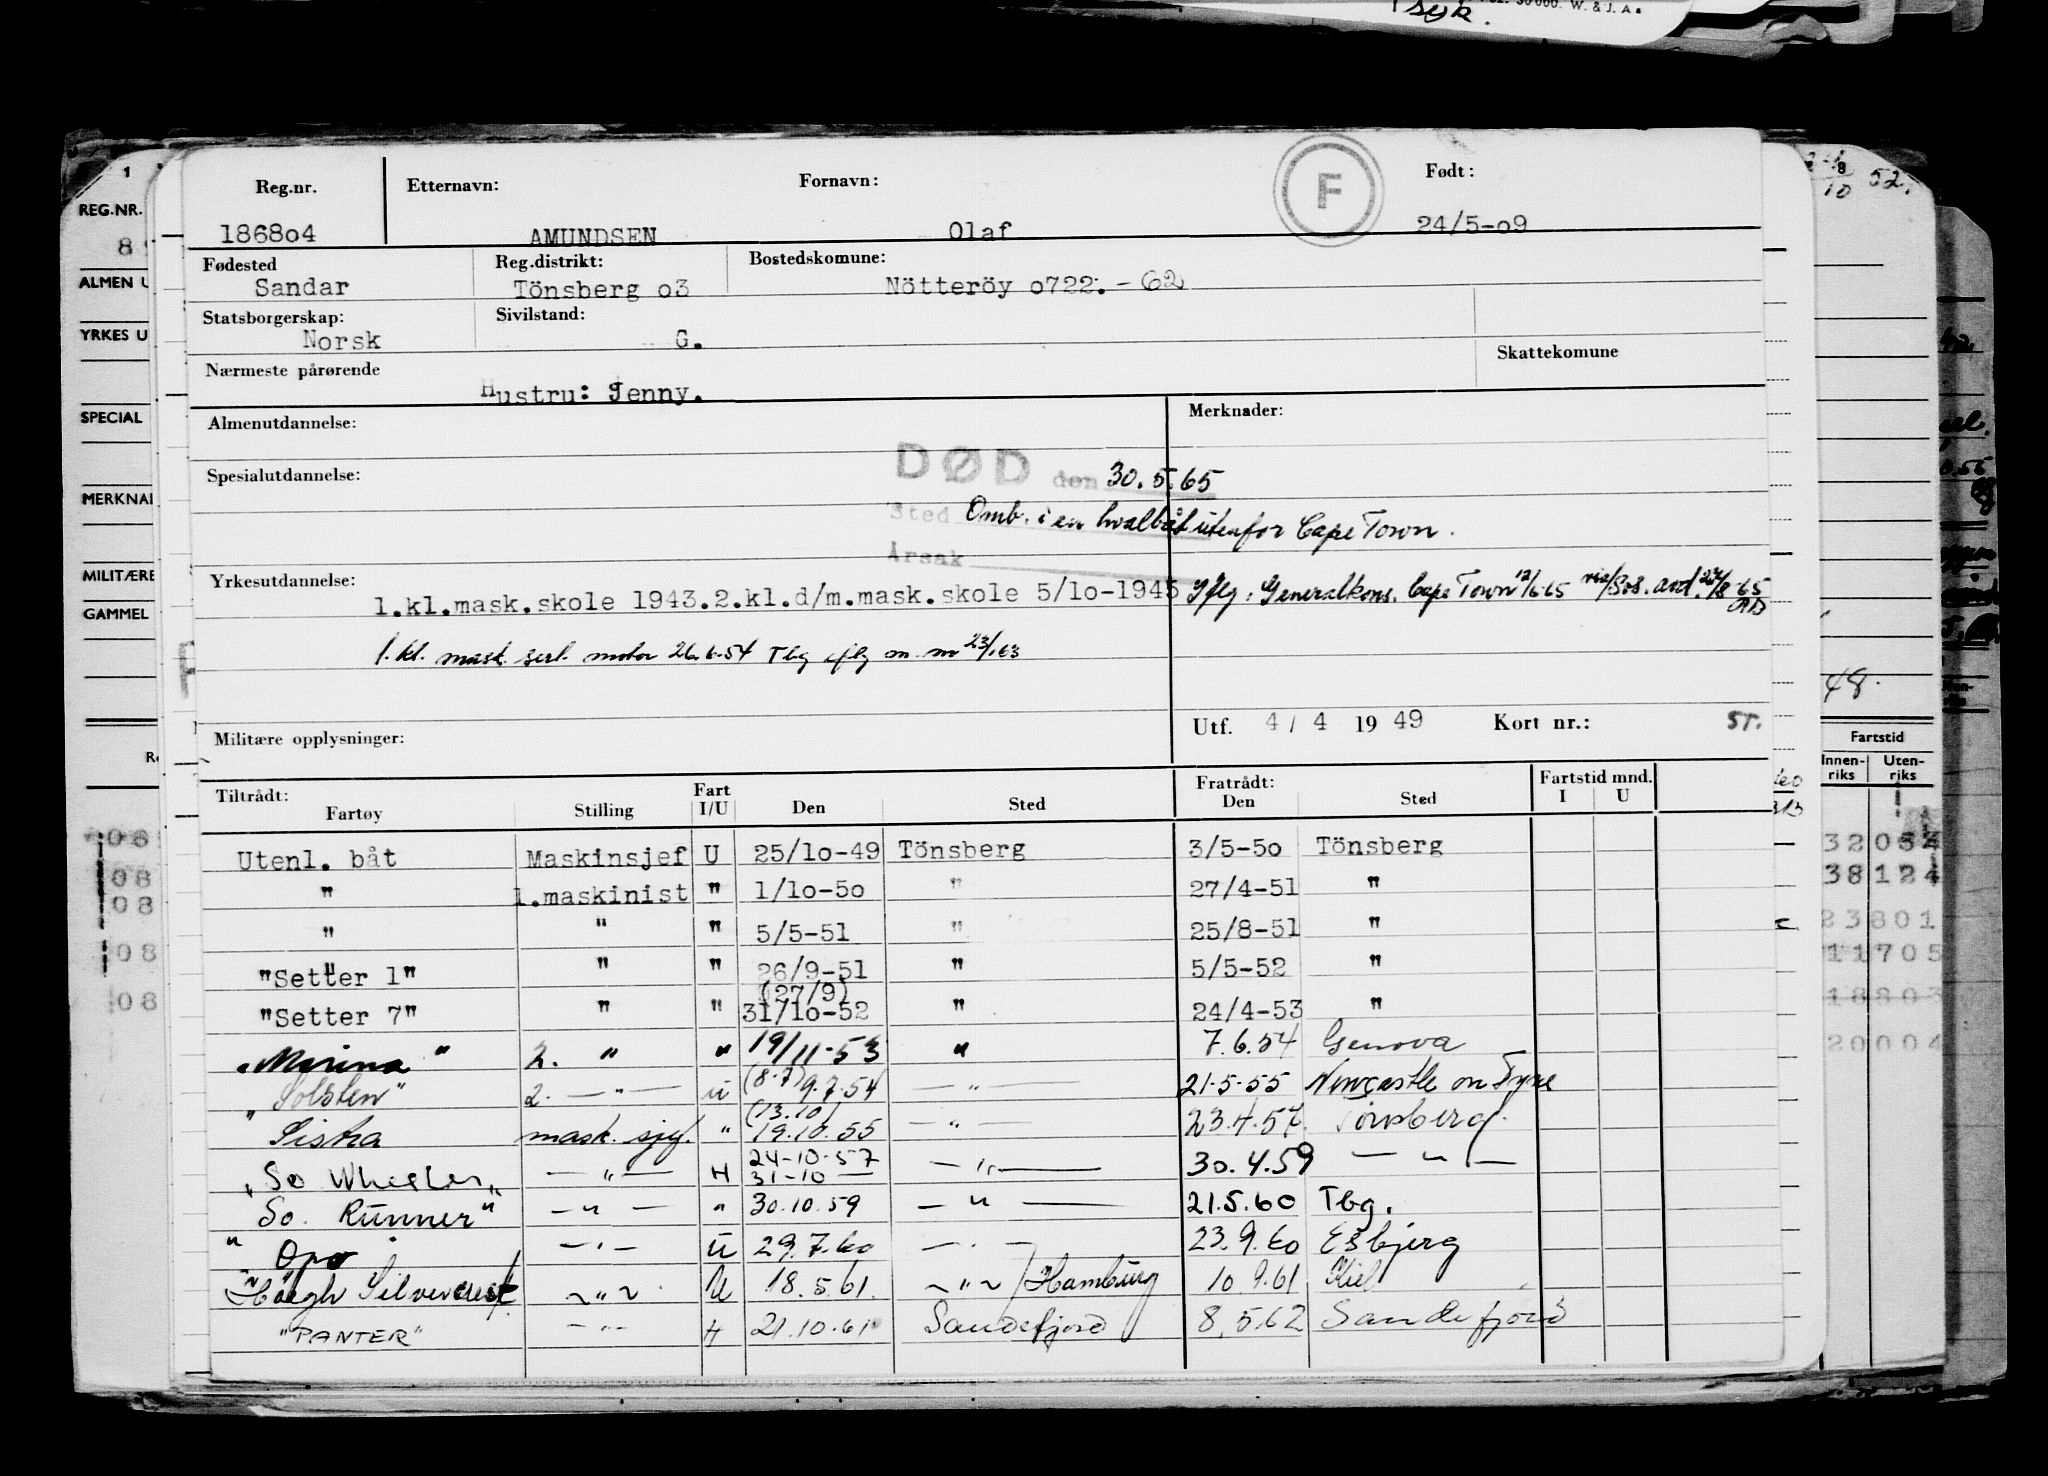 syk.
W. & J. A.
Reg.nr. Etternavn: Fornavn: F Født:
186804 AMUNDSEN Olaf 24/5-09
Fødested Reg.distrikt: Bostedskomune:
Sandar Tönsberg o3 Nötteröy o722. -62
Statsborgerskap: Sivilstand:
Norsk G.
Skattekomune
Nærmeste pårørende
Hustru: Jenny.
Almenutdannelse: Merknader:
Spesialutdannelse: DØD den 30.5.65
Sted Omb. i en hvalbåt utenfor Cape Town.
Årsak
Yrkesutdannelse:
1.kl.mask.skole 1943.2.kl.d/m.mask.skole 5/1o-1945 Iflg. Generalkons. Cape Town 12/6-65 24/8-65
1.kl. mask. sert. motor 26.6.54 Tbg iflg m. 23/1 63
Utf. 4/4 1949 Kort nr.: 5T.
Militære opplysninger:
Tiltrådt: Fratrådt: Fartstid mnd.
Fartøy Stilling Fart I/U Den Sted Den Sted I U
Utenl. båt Maskinsjef U 25/1o-49 Tönsberg 3/5-5o Tönsberg
" 1.maskinist " 1/1o-5o " 27/4-51 "
" " " 5/5-51 " 25/8-51 "
"Setter 1" " " 26/9-51 (27/9) " 5/5-52 "
"Setter 7" " " 31/1o-52 " 24/4-53 "
"Marina" 2. " " 19/11-53 " 7.6.54 Genova
"Solsten" 2. — " — U (8.7) 9.7.54 — " — 21.5.55 Newcastle on Tyne
Siska mask. sjef. " (13.10) 19.10.55 — " — 23.4.57. Tönsberg.
"So Wheeler" — " — H 24-10-57 31-10 — — " — 30.4.59 — " —
"So. Runner" — " — " 30.10.59 — " — 21.5.60 Tbg.
" Opo — " — U 29.7.60 — " — 23.9.60 Esbjerg
"Höegh Silvercrest" ~ " ~ U 18.5.61. ~ " ~ / Hamburg 10.9.61 Kiel
"PANTER" — " — H 21.10.61 Sandefjord 8.5.62 Sandefjord
1
REG.NR.
ALMEN U
YRKES U
SPECIAL
MERKNA
MILITÆRE
GAMMEL
8
52.
48.
Fartstid
Innen-riks Uten-riks